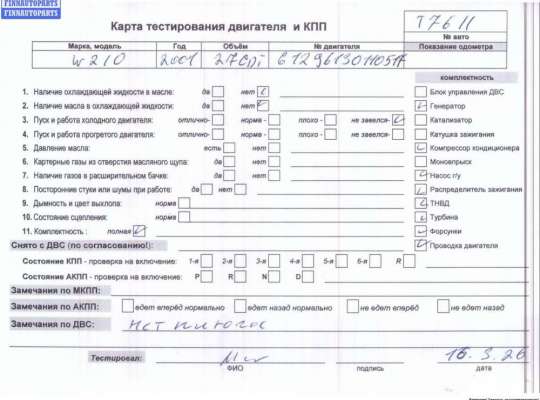 FINNAUTOPARTS
FINNAUTOPARTS
Карта тестирования двигателя и КПП
T7611
№ авто
Марка, модель Год Объём № двигателя Показание одометра
W210 2001 2.7CDI
комплектность
1. Наличие охлаждающей жидкости в масле: да нет
Блок управления ДВС
2. Наличие масла в охлаждающей жидкости: да нет
Генератор
3. Пуск и работа холодного двигателя: отлично- норма - плохо - не завелся-
Катализатор
4. Пуск и работа прогретого двигателя: отлично- норма - плохо - не завелся-
Катушка зажигания
5. Давление масла: есть нет
Компрессор кондиционера
6. Картерные газы из отверстия масляного щупа: да нет
Моновпрыск
7. Наличие газов в расширительном бачке: да нет
Насос г/у
8. Посторонние стуки или шумы при работе: да нет
Распределитель зажигания
9. Дымность и цвет выхлопа: норма
ТНВД
10. Состояние сцепления: норма
Турбина
11. Комплектность : полная
Форсунки
Снято с ДВС (по согласованию!):
Проводка двигателя
Состояние КПП - проверка на включение: 1-я 2-я 3-я 4-я 5-я 6-я R
Состояние АКПП - проверка на включение: P R N D
Замечания по МКПП:
Замечания по АКПП: едет вперёд нормально едет назад нормально не едет вперёд не едет назад
Замечания по ДВС:
Тестировал:
ФИО подпись дата